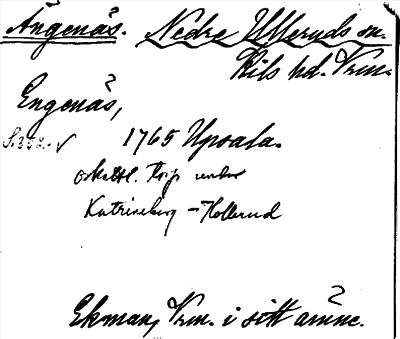 Ängenäs. Nedre Ulleruds sn.
Kils hd. Vrm.
Engenäs,
S. 352. ✓ 1765 Upsala.
oskattl. torp under
Katrineberg - Hollerud
Ekman, Vrm. i sitt ämne.